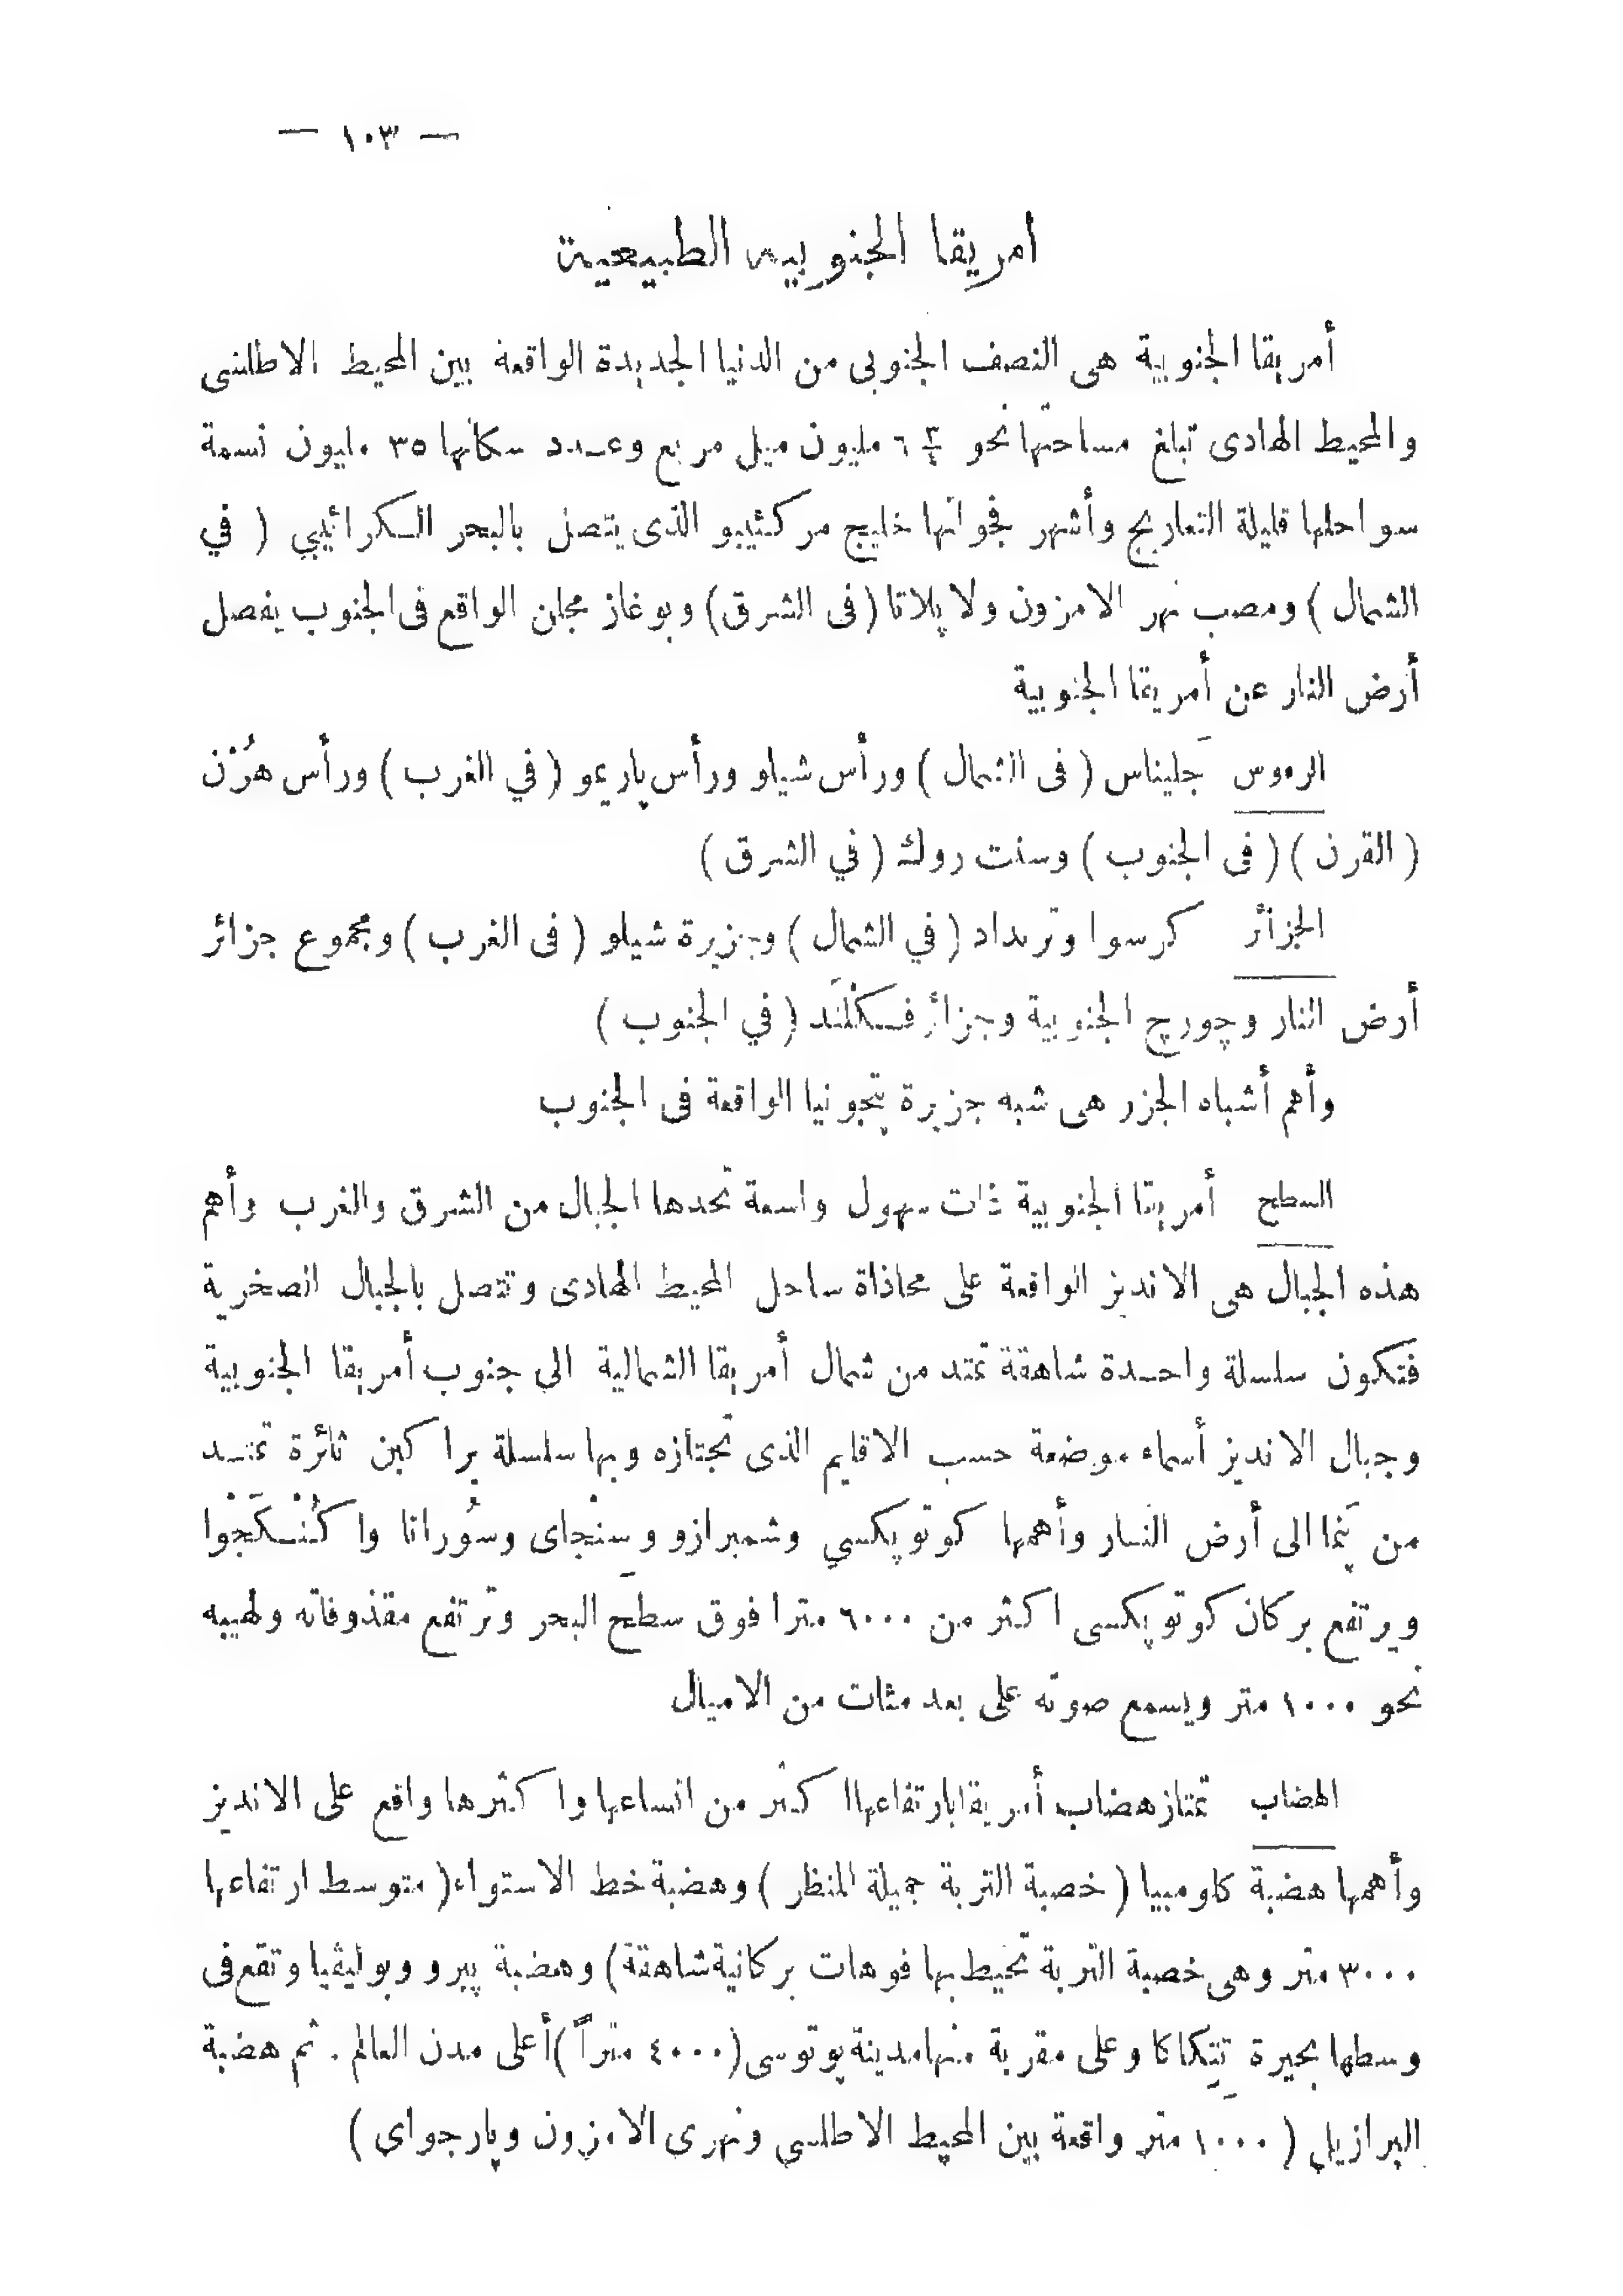 — ١٠٣ —
امريقا الجنوبية الطبيعية
أمريقا الجنوبية هى النصف الجنوبى من الدنيا الجديدة الواقعة بين المحيط الاطلنتى
والمحيط الهادى تبلغ مساحتها نحو ٦ ٣/٤ مليون ميل مربع وعدد سكانها ٣٥ مليون نسمة
سواحلها قليلة التعاريج وأشهر فجواتها خليج مركيبو الذى يتصل بالبحر الكرائيبي ( في
الشمال ) ومصب نهر الامزون ولا پلاتا ( فى الشرق ) وبوغاز مجلن الواقع فى الجنوب يفصل
أرض النار عن أمريقا الجنوبية
الرءوس جَليناس ( فى الشمال ) ورأس شيلو ورأس پاريمو ( في الغرب ) ورأس هُرْن
( القرن ) ( فى الجنوب ) وسنت روك ( في الشرق )
الجزائر كرسوا وترنداد ( في الشمال ) وجزيرة شيلو ( فى الغرب ) ومجموع جزائر
أرض النار وچورچ الجنوبية وجزائر فسكْلَند ( في الجنوب )
وأهم أشباه الجزر هى شبه جزيرة پتجونيا الواقعة فى الجنوب
السطح أمريقا الجنوبية ذات سهول واسعة تحدها الجبال من الشرق والغرب وأهم
هذه الجبال هى الانديز الواقعة على محاذاة ساحل المحيط الهادى وتتصل بالجبال الصخرية
فتكون سلسلة واحدة شاهقة تمتد من شمال أمريقا الشمالية الى جنوب أمريقا الجنوبية
وجبال الانديز أسماء موضعة حسب الاقليم الذى تجتازه وبها سلسلة براكين ثائرة تمتد
من پَنما الى أرض النار وأهمها كوتوپكسي وشمبرازو وسنْجاى وسُورانا واكُنْكَجْوا
ويرتفع بركان كوتوپكسى اكثر من ٦٠٠٠ مترا فوق سطح البحر وترتفع مقذوفاته ولهيبه
نحو ١٠٠٠ متر ويسمع صوته على بعد مئات من الاميال
الهضاب تمتاز هضاب أمريقا بارتفاعها اكثر من اتساعها واكثرها واقع على الانديز
وأهمها هضبة كلومبيا ( خصبة التربة جميلة المنظر ) وهضبة خط الاستواء ( متوسط ارتفاعها
٣٠٠٠ متر وهى خصبة التربة تحيط بها فوهات بركانية شاهقة ) وهضبة پيرو وبوليڤيا وتقع فى
وسطها بحيرة تِتِكاكا وعلى مقربة منها مدينة پوتوسى ( ٤٠٠٠ متراً ) أعلى مدن العالم . ثم هضبة
البرازيل ( ١٠٠٠ متر واقعة بين المحيط الاطلسى ونهرى الامزون وپارجواى )